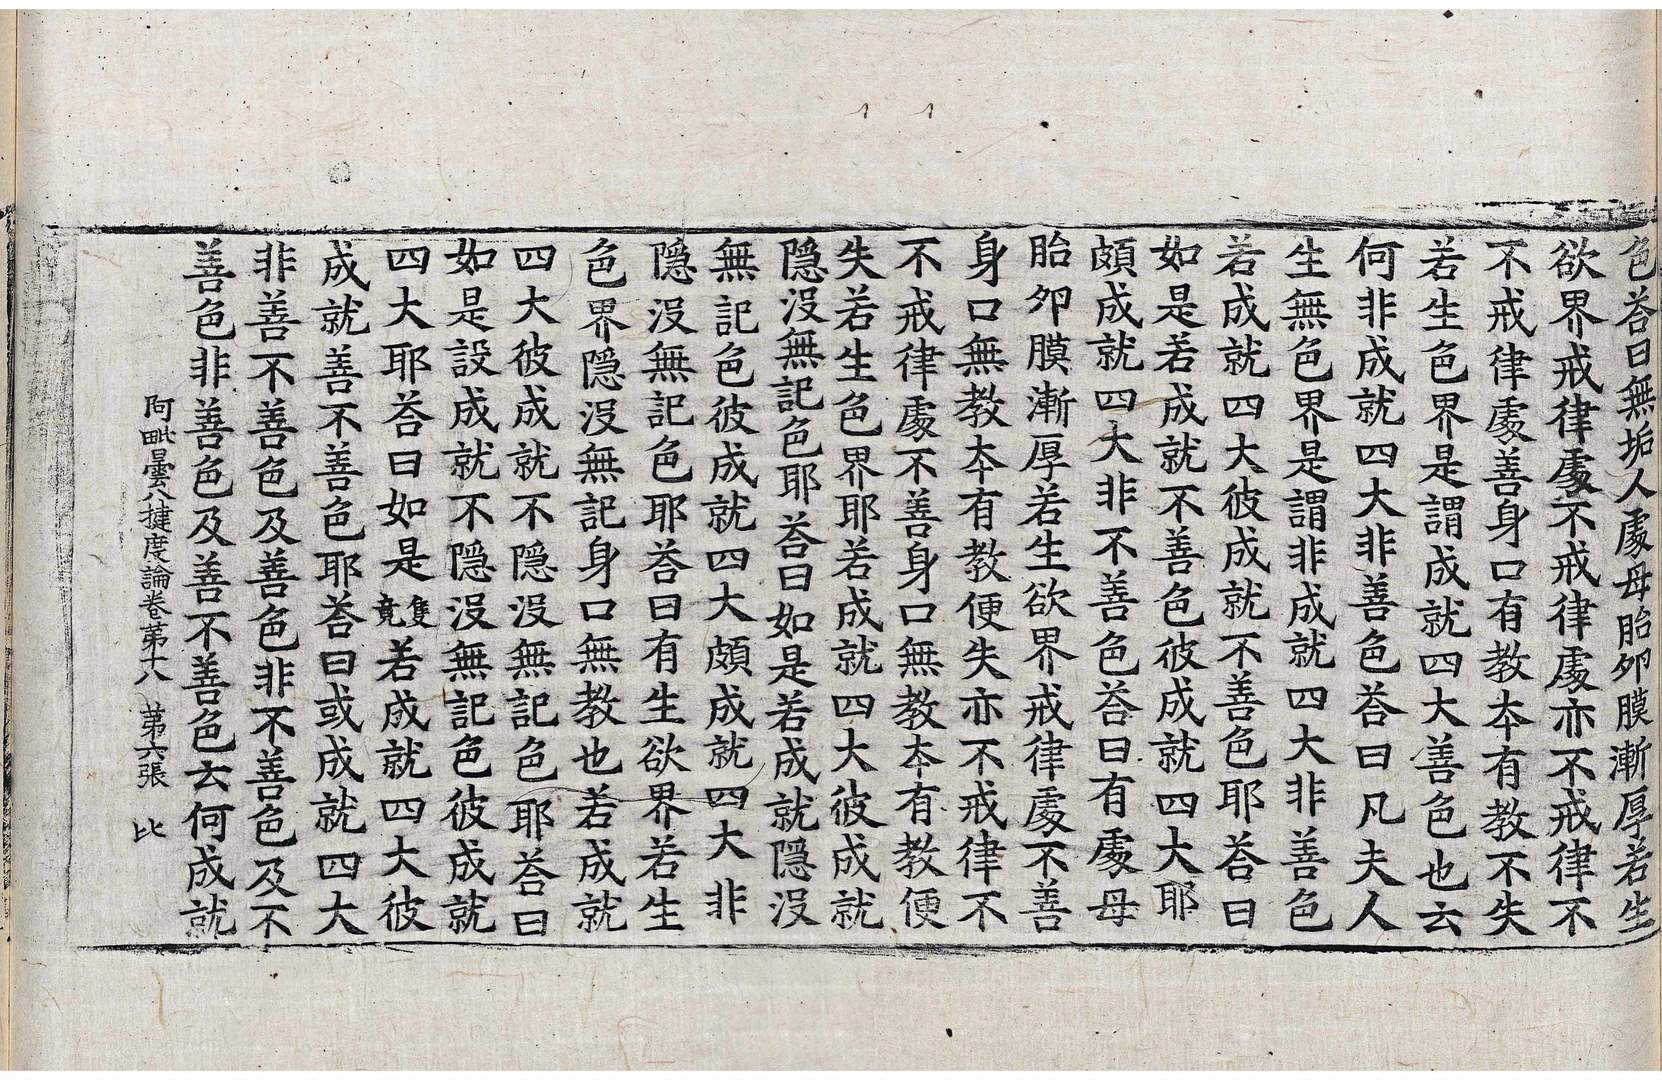 色荅曰無垢人處母胎夘膜漸厚若生
欲界戒律處不戒律處亦不戒律不
不戒律處善身口有教夲有教不失
若生色界是謂成就四大善色也云
何非成就四大非善色荅曰凡夫人
生無色界是謂非成就四大非善色
若成就四大彼成就不善色耶荅曰
如是若成就不善色彼成就四大耶
頗成就四大非不善色荅曰有處母
胎夘膜漸厚若生欲界戒律處不善
身口無教夲有教便失亦不戒律不
不戒律處不善身口無教夲有教便
失若生色界耶若成就四大彼成就
隱没無記色耶荅曰如是若成就隱没
無記色彼成就四大頗成就四大非
隱没無記色耶荅曰有生欲界若生
色界隱没無記身口無教也若成就
四大彼成就不隱没無記色耶荅曰
如是設成就不隱没無記色彼成就
四大耶荅曰如是隻竟若成就四大彼
成就善不善色耶荅曰或成就四大
非善不善色及善色非不善色及不
善色非善色及善不善色云何成就
阿毗曇八揵度論卷苐十八 苐六張 比